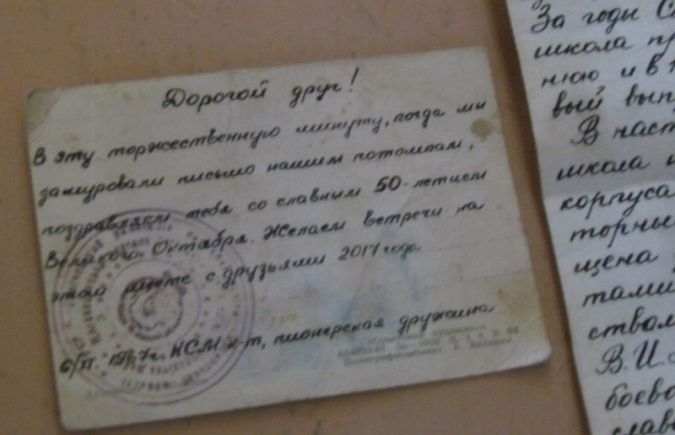 Дорогой друг!
В эту торжественную минуту, когда мы
замуровали письмо нашим потомкам,
поздравляем тебя со славным 50-летием
Великого Октября. Желаем встречи на
этом месте с друзьями 2017 года.
6/XI. 1967г. КСМ к-т, пионерская дружина
За годы С
школа пр
нюю и в н
вый вып
В наст
школа
корпуса
торны
щена
тами
ством
В.И.
боево
слав